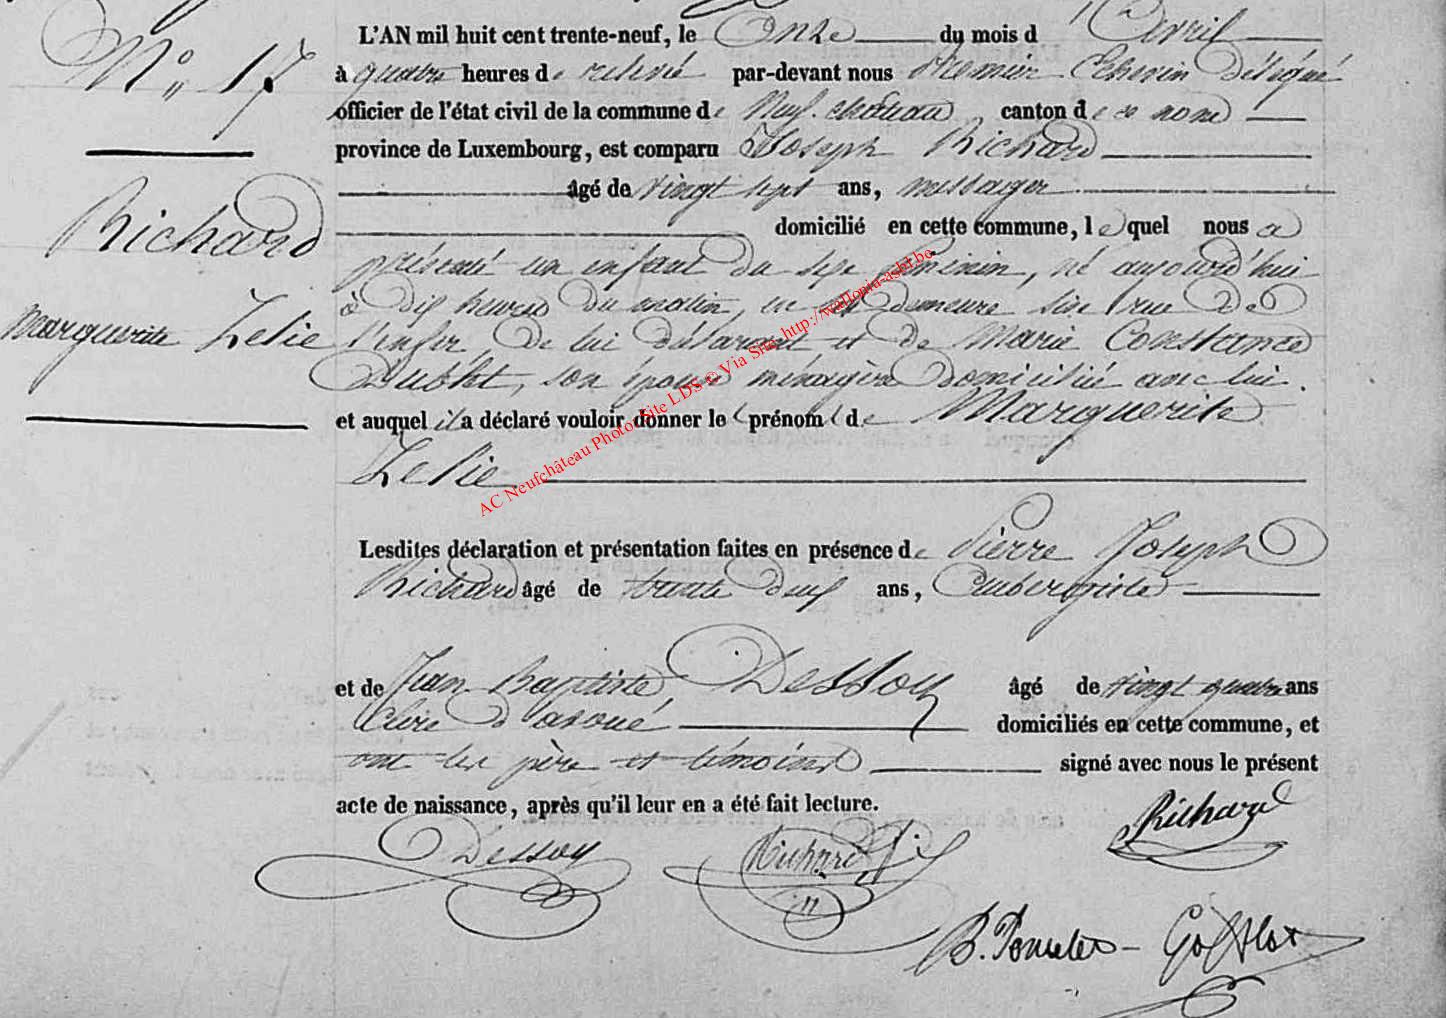 N° 17
Richard
Marguerite Zelie
L'AN mil huit cent trente-neuf, le Onze du mois d'Avril
à quatre heures de relevée par-devant nous Premier Echevin délégué
officier de l'état civil de la commune de Neufchateau canton de ce nom
province de Luxembourg, est comparu Joseph Richard
âgé de vingt sept ans, messager
domicilié en cette commune, lequel nous a
présenté un enfant du sexe féminin, né aujourd'hui
à dix heures du matin, en sa demeure sise rue de
l'enfer, de lui déclarant et de Marie Constance
son épouse ménagère domiciliée avec lui.
et auquel il a déclaré vouloir donner le prénom de Marguerite
Zelie
Lesdites déclaration et présentation faites en présence de Pierre Joseph
Richard âgé de trente deux ans, Aubergiste
et de Jean Baptiste Dessoy âgé de vingt quatre ans
Clerc d'avoué domiciliés en cette commune, et
ont les père et témoins signé avec nous le présent
acte de naissance, après qu'il leur en a été fait lecture.
Richard
Dessoy Richard
B. Poncelet
AC Neufchâteau Photo Site LDS © Via Site http://wallonia-asbl.be